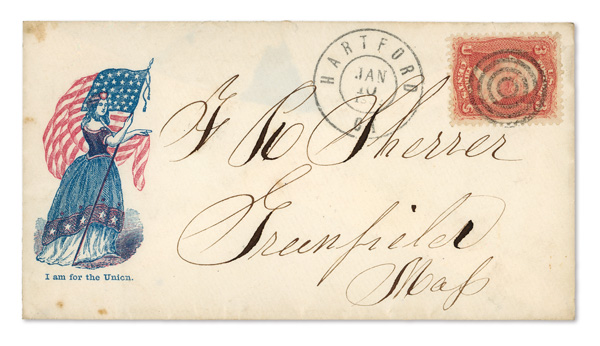 HARTFORD
JAN
10
CT.
F R Sherrer
Greenfield
Mass
I am for the Union.